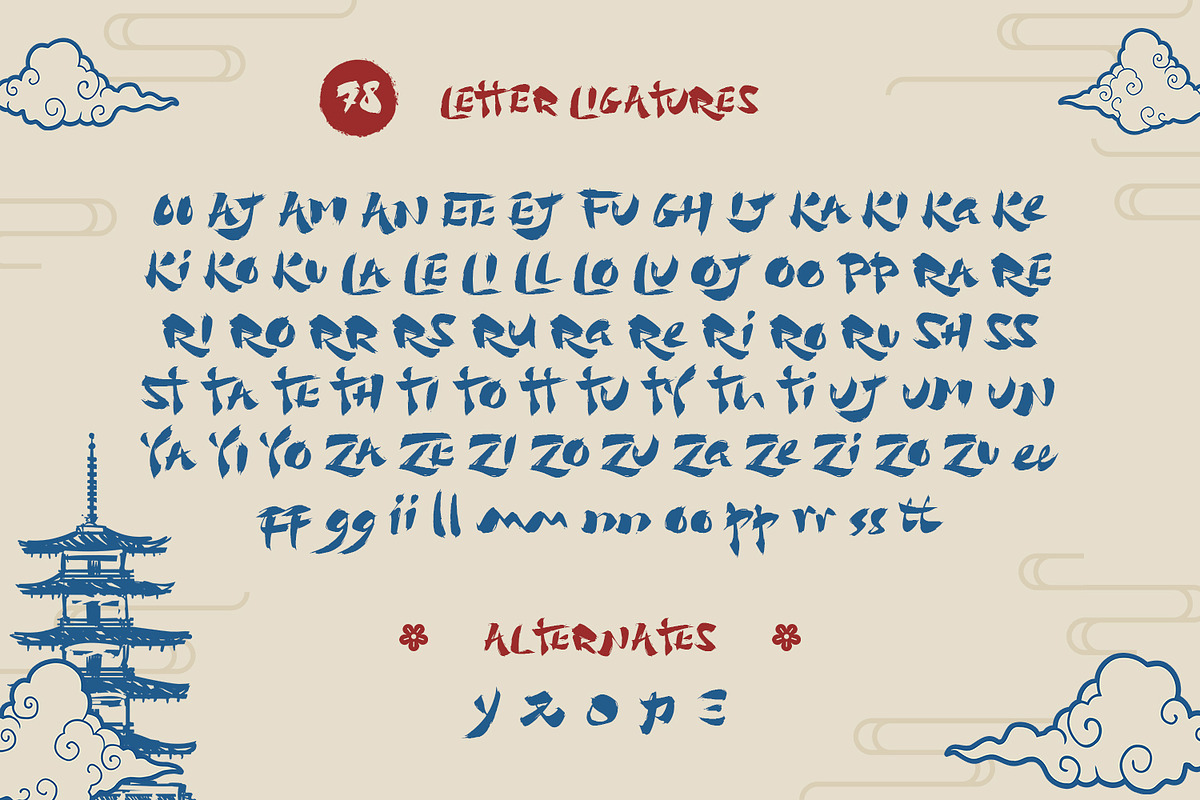 78 LETTER LIGATURES
00 AJ AM AN EE EJ FU GH IJ KA KI Ka Ke
Ki Ko Ku LA LE LI LL LO LU OJ OO PP RA RE
RI RO RR RS RU Ra Re Ri Ro Ru SH SS
ST TA TE TH TI TO TT TU TY Th Ti UJ UM UN
YA YI YO ZA ZE ZI ZO ZU Za Ze Zi Zo Zu ee
FF gg ii ll mm nn oo pp rr ss tt
ALTERNATES